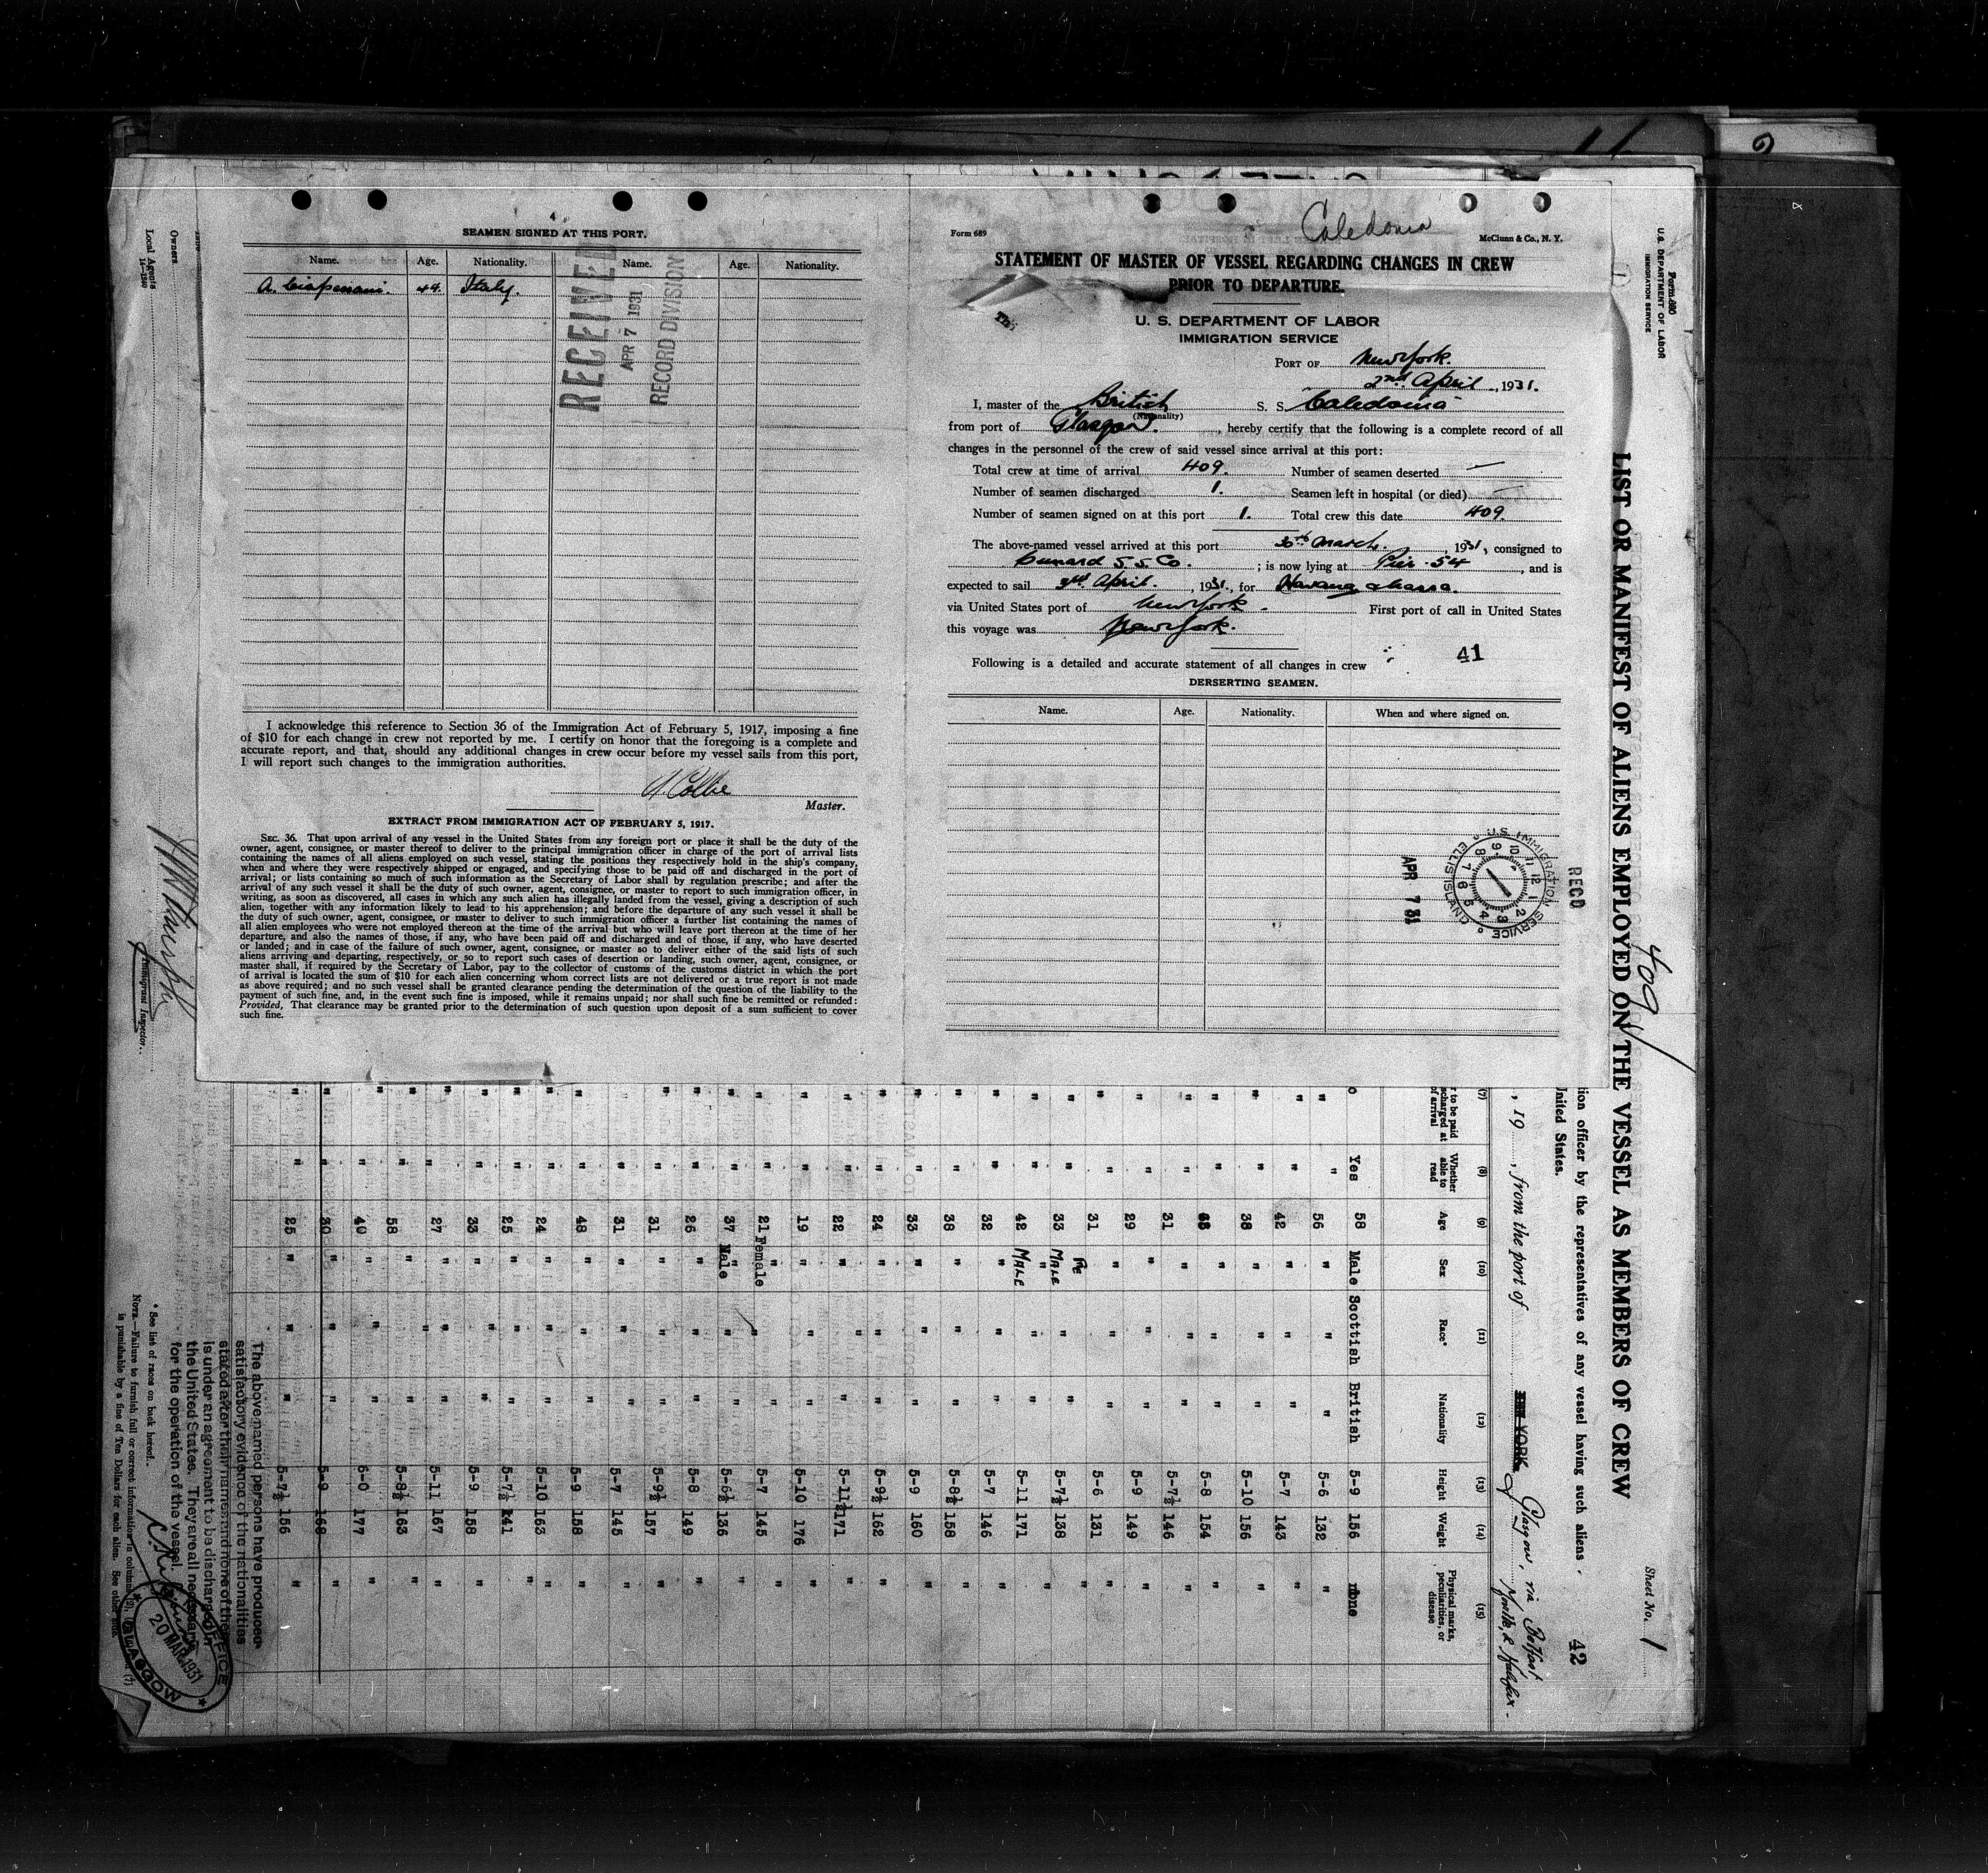 SEAMEN SIGNED AT THIS PORT.
Name. Age. Nationality. Name. Age. Nationality.
A. 44. Italy.
RECEIVED
APR 7 1931
RECORD DIVISION
I acknowledge this reference to Section 36 of the Immigration Act of February 5, 1917, imposing a fine
of $10 for each change in crew not reported by me. I certify on honor that the foregoing is a complete and
accurate report, and that, should any additional changes in crew occur before my vessel sails from this port,
I will report such changes to the immigration authorities.
A. Collie
Master.
EXTRACT FROM IMMIGRATION ACT OF FEBRUARY 5, 1917.
SEC. 36. That upon arrival of any vessel in the United States from any foreign port or place it shall be the duty of the
owner, agent, consignee, or master thereof to deliver to the principal immigration officer in charge of the port of arrival lists
containing the names of all aliens employed on such vessel, stating the positions they respectively hold in the ship's company,
when and where they were respectively shipped or engaged, and specifying those to be paid off and discharged in the port of
arrival; or lists containing so much of such information as the Secretary of Labor shall by regulation prescribe; and after the
arrival of any such vessel it shall be the duty of such owner, agent, consignee, or master to report to such immigration officer, in
writing, as soon as discovered, all cases in which any such alien has illegally landed from the vessel, giving a description of such
alien, together with any information likely to lead to his apprehension; and before the departure of any such vessel it shall be
the duty of such owner, agent, consignee, or master to deliver to such immigration officer a further list containing the names of
all alien employees who were not employed thereon at the time of the arrival but who will leave port thereon at the time of her
departure, and also the names of those, if any, who have been paid off and discharged and of those, if any, who have deserted
or landed; and in case of the failure of such owner, agent, consignee, or master so to deliver either of the said lists of such
aliens arriving and departing, respectively, or so to report such cases of desertion or landing, such owner, agent, consignee, or
master shall, if required by the Secretary of Labor, pay to the collector of customs of the customs district in which the port
of arrival is located the sum of $10 for each alien concerning whom correct lists are not delivered or a true report is not made
as above required; and no such vessel shall be granted clearance pending the determination of the question of the liability to the
payment of such fine, and, in the event such fine is imposed, while it remains unpaid; nor shall such fine be remitted or refunded:
Provided, That clearance may be granted prior to the determination of such question upon deposit of a sum sufficient to cover
such fine.
Form 689 Caledonia McClunn & Co., N. Y.
STATEMENT OF MASTER OF VESSEL REGARDING CHANGES IN CREW
PRIOR TO DEPARTURE.
U. S. DEPARTMENT OF LABOR
IMMIGRATION SERVICE
PORT OF New York.
2nd April, 1931.
I, master of the British S. S. Caledonia
(Nationality)
from port of Glasgow., hereby certify that the following is a complete record of all
changes in the personnel of the crew of said vessel since arrival at this port:
Total crew at time of arrival 409. Number of seamen deserted —
Number of seamen discharged 1. Seamen left in hospital (or died) —
Number of seamen signed on at this port 1. Total crew this date 409.
The above-named vessel arrived at this port 30th March., 1931, consigned to
Cunard S. S. Co.; is now lying at Pier 54, and is
expected to sail 3rd April., 1931, for Havana
via United States port of New York. First port of call in United States
this voyage was New York.
Following is a detailed and accurate statement of all changes in crew 41
DERSERTING SEAMEN.
Name. Age. Nationality. When and where signed on.
APR 7 31
U.S. IMMIGRATION SERVICE ELLIS ISLAND
REC'D
Form 680
U. S. DEPARTMENT OF LABOR
IMMIGRATION SERVICE
LIST OR MANIFEST OF ALIENS EMPLOYED ON THE VESSEL AS MEMBERS OF CREW
409
Sheet No. 1
42
tion officer by the representatives of any vessel having such aliens
United States.
, 19 , from the port of Glasgow, via Belfast
& Halifax
YORK
(7) (8) (9) (10) (11) (12) (13) (14) (15)
Whether able to read Age Sex Race* Nationality Height Weight Physical marks, peculiarities, or disease
o Yes 58 Male Scottish British 5-9 156 none
" " 56 " " " 5-6 132 "
" " 42 " " " 5-7 143 "
" " 38 " " " 5-10 156 "
" " " " " 5-8 154 "
" " 31 " " " 5-7½ 146 "
" " 29 " " " 5-9 149 "
" " 31 " " 5-6 131 "
" " 33 Male " " 5-7½ 138 "
" " 42 Male " " 5-11 171 "
" " 32 " " " 5-7 146 "
" " 38 " " " 5-8½ 158 "
" " 33 " " " 5-9 160 "
" " 24 " " " 5-9½ 162 "
" " 22 " " " 5-11½ 171 "
" " 19 " " " 5-10 176 "
" " 21 Female " " 5-7 145 "
" " 37 Male " " 5-6½ 136 "
" " 26 " " " 5-8 149 "
" " 31 " " " 5-9½ 157 "
" " 31 " " " 5-7 145 "
" " 48 " " " 5-9 158 "
" " 24 " " " 5-10 163 "
" " 25 " " " 5-7½ 141 "
" " 33 " " " 5-9 158 "
" " 27 " " " 5-11 167 "
" " 58 " " " 5-8½ 163 "
" " 40 " " " 6-0 177 "
" " 30 " " " 5-9 168 "
" " 25 " " " 5-7½ 156 "
The above named persons have produced
satisfactory evidence of the nationalities
stated after their names and none of them
is under an agreement to be discharged in
the United States. They are all necessary
for the operation of the vessel.
* See list of races on back hereof.
NOTE.—Failure to furnish full or correct information in columns
is punishable by a fine of Ten Dollars for each alien. See other side.
OFFICE
20 MAR. 1931
GLASGOW
Immigrant Inspector.
Owners
Local Agents